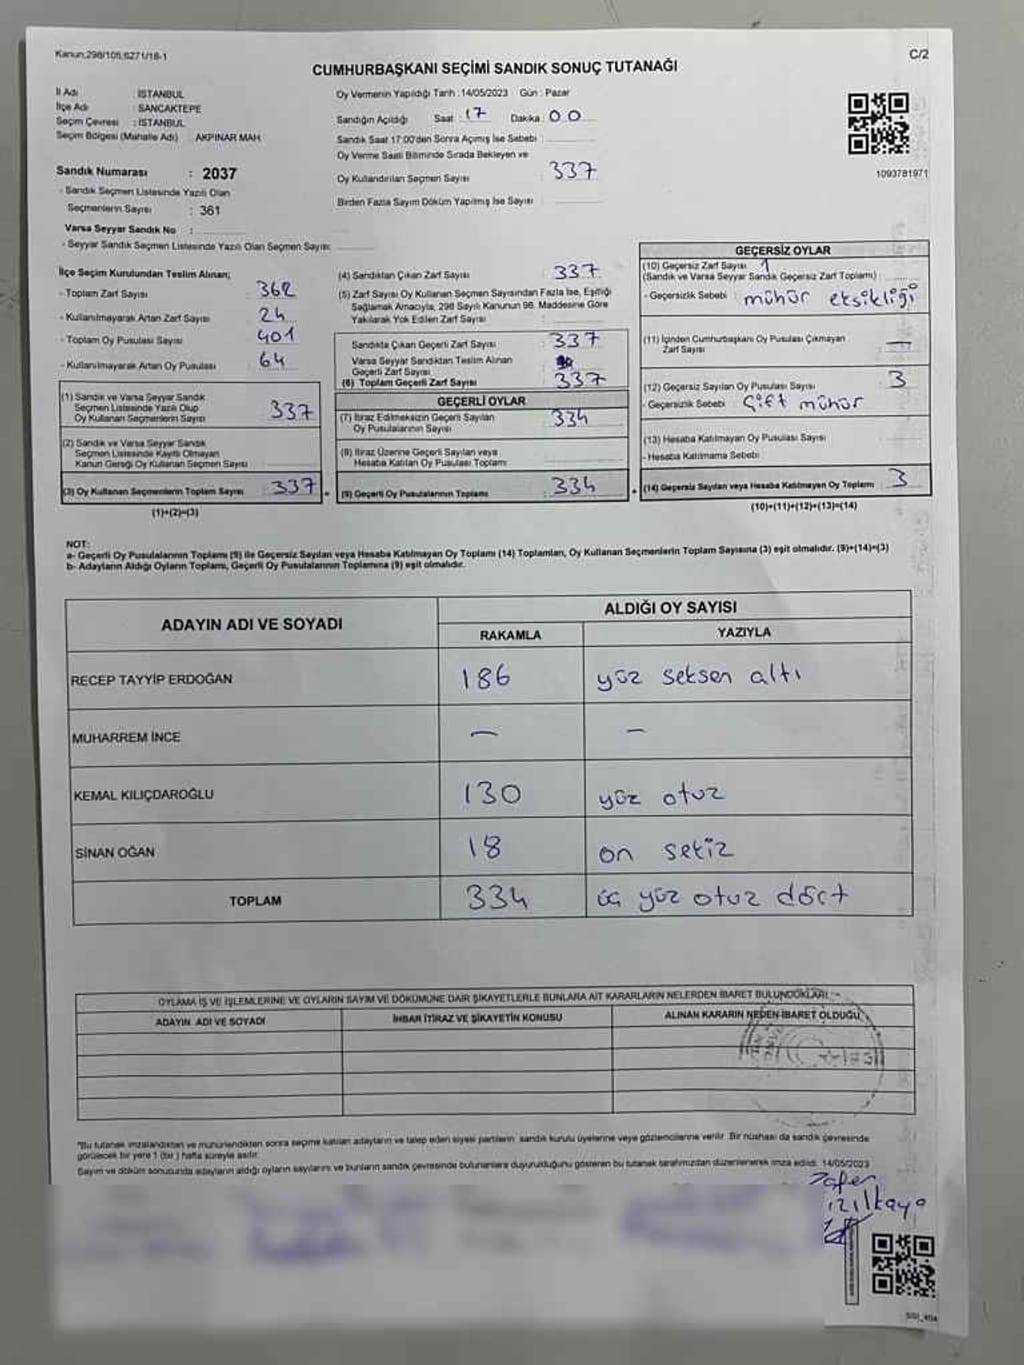 Kanun,298/105,6271/18-1
C/2
CUMHURBAŞKANI SEÇİMİ SANDIK SONUÇ TUTANAĞI
İl Adı : İSTANBUL
İlçe Adı : SANCAKTEPE
Seçim Çevresi : İSTANBUL
Seçim Bölgesi (Mahalle Adı) : AKPINAR MAH.
Sandık Numarası : 2037
- Sandık Seçmen Listesinde Yazılı Olan
Seçmenlerin Sayısı : 361
Varsa Seyyar Sandık No :
- Seyyar Sandık Seçmen Listesinde Yazılı Olan Seçmen Sayısı:
Oy Vermenin Yapıldığı Tarih :14/05/2023 Gün : Pazar
Sandığın Açıldığı Saat : 17 Dakika : 00
Sandık Saat 17:00'den Sonra Açılmış İse Sebebi :
Oy Verme Saati Bitiminde Sırada Bekleyen ve
Oy Kullandırılan Seçmen Sayısı : 337
Birden Fazla Sayım Döküm Yapılmış İse Sayısı
1093781971
İlçe Seçim Kurulundan Teslim Alınan;
- Toplam Zarf Sayısı : 362
- Kullanılmayarak Artan Zarf Sayısı : 24
- Toplam Oy Pusulası Sayısı : 401
- Kullanılmayarak Artan Oy Pusulası : 64
(1) Sandık ve Varsa Seyyar Sandık
Seçmen Listesinde Yazılı Olup
Oy Kullanan Seçmenlerin Sayısı : 337
(2) Sandık ve Varsa Seyyar Sandık
Seçmen Listesinde Kayıtlı Olmayan
Kanun Gereği Oy Kullanan Seçmen Sayısı
(3) Oy Kullanan Seçmenlerin Toplam Sayısı : 337
(1)+(2)=(3)
(4) Sandıktan Çıkan Zarf Sayısı : 337
(5) Zarf Sayısı Oy Kullanan Seçmen Sayısından Fazla İse, Eşitliği
Sağlamak Amacıyla, 298 Sayılı Kanunun 98. Maddesine Göre
Yakılarak Yok Edilen Zarf Sayısı
Sandıkta Çıkan Geçerli Zarf Sayısı : 337
Varsa Seyyar Sandıktan Teslim Alınan
Geçerli Zarf Sayısı
(6) Toplam Geçerli Zarf Sayısı : 337
GEÇERLİ OYLAR
(7) İtiraz Edilmeksizin Geçerli Sayılan
Oy Pusulalarının Sayısı : 334
(8) İtiraz Üzerine Geçerli Sayılan veya
Hesaba Katılan Oy Pusulası Toplamı
(9) Geçerli Oy Pusulalarının Toplamı : 334
GEÇERSİZ OYLAR
(10) Geçersiz Zarf Sayısı 1
(Sandık ve Varsa Seyyar Sandık Geçersiz Zarf Toplamı) :
- Geçersizlik Sebebi : mühür eksikliği
(11) İçinden Cumhurbaşkanı Oy Pusulası Çıkmayan
Zarf Sayısı : —
(12) Geçersiz Sayılan Oy Pusulası Sayısı : 3
- Geçersizlik Sebebi : Çift mühür
(13) Hesaba Katılmayan Oy Pusulası Sayısı :
- Hesaba Katılmama Sebebi :
(14) Geçersiz Sayılan veya Hesaba Katılmayan Oy Toplamı : 3
(10)+(11)+(12)+(13)=(14)
NOT:
a- Geçerli Oy Pusulalarının Toplamı (9) ile Geçersiz Sayılan veya Hesaba Katılmayan Oy Toplamı (14) Toplamları, Oy Kullanan Seçmenlerin Toplam Sayısına (3) eşit olmalıdır. (9)+(14)=(3)
b- Adayların Aldığı Oyların Toplamı, Geçerli Oy Pusulalarının Toplamına (9) eşit olmalıdır.
ADAYIN ADI VE SOYADI
ALDIĞI OY SAYISI
RAKAMLA YAZIYLA
RECEP TAYYİP ERDOĞAN 186 yüz seksen altı
MUHARREM İNCE — —
KEMAL KILIÇDAROĞLU 130 yüz otuz
SİNAN OĞAN 18 on sekiz
TOPLAM 334 üç yüz otuz dört
OYLAMA İŞ VE İŞLEMLERİNE VE OYLARIN SAYIM VE DÖKÜMÜNE DAİR ŞİKAYETLERLE BUNLARA AİT KARARLARIN NELERDEN İBARET BULUNDUKLARI
ADAYIN ADI VE SOYADI İHBAR İTİRAZ VE ŞİKAYETİN KONUSU ALINAN KARARIN NEDEN İBARET OLDUĞU
*Bu tutanak imzalandıktan ve mühürlendikten sonra seçime katılan adayların ve talep eden siyasi partilerin sandık kurulu üyelerine veya gözlemcilerine verilir. Bir nüshası da sandık çevresinde
görülecek bir yere 1 (bir) hafta süreyle asılır.
Sayım ve döküm sonucunda adayların aldığı oyların sayılarını ve bunların sandık çevresinde bulunanlara duyurulduğunu gösteren bu tutanak tarafımızdan düzenlenerek imza edildi. 14/05/2023
Zafer